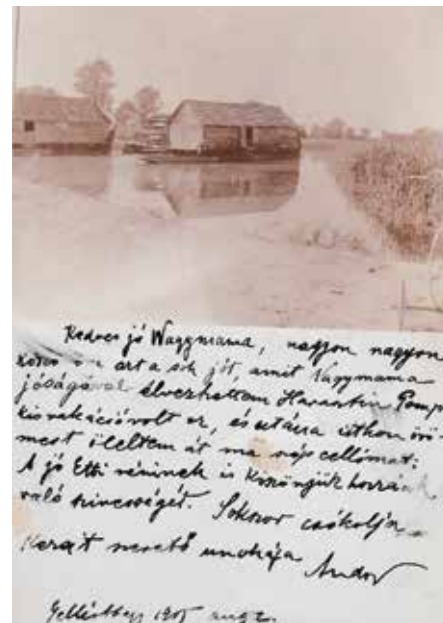 Kedves jó Nagymama, nagyon nagyon
azt a sok jót, amit Nagymama
jóságával élvezhettem
kis vakáció volt ez, és utána itthon örö-
mest át
A jó Etti néninek is köszönjük hozzánk
való szivességét. Sokszor csókolja
Kezeit szerető unokája
Andor
Gellérthegy 1905 aug 2.